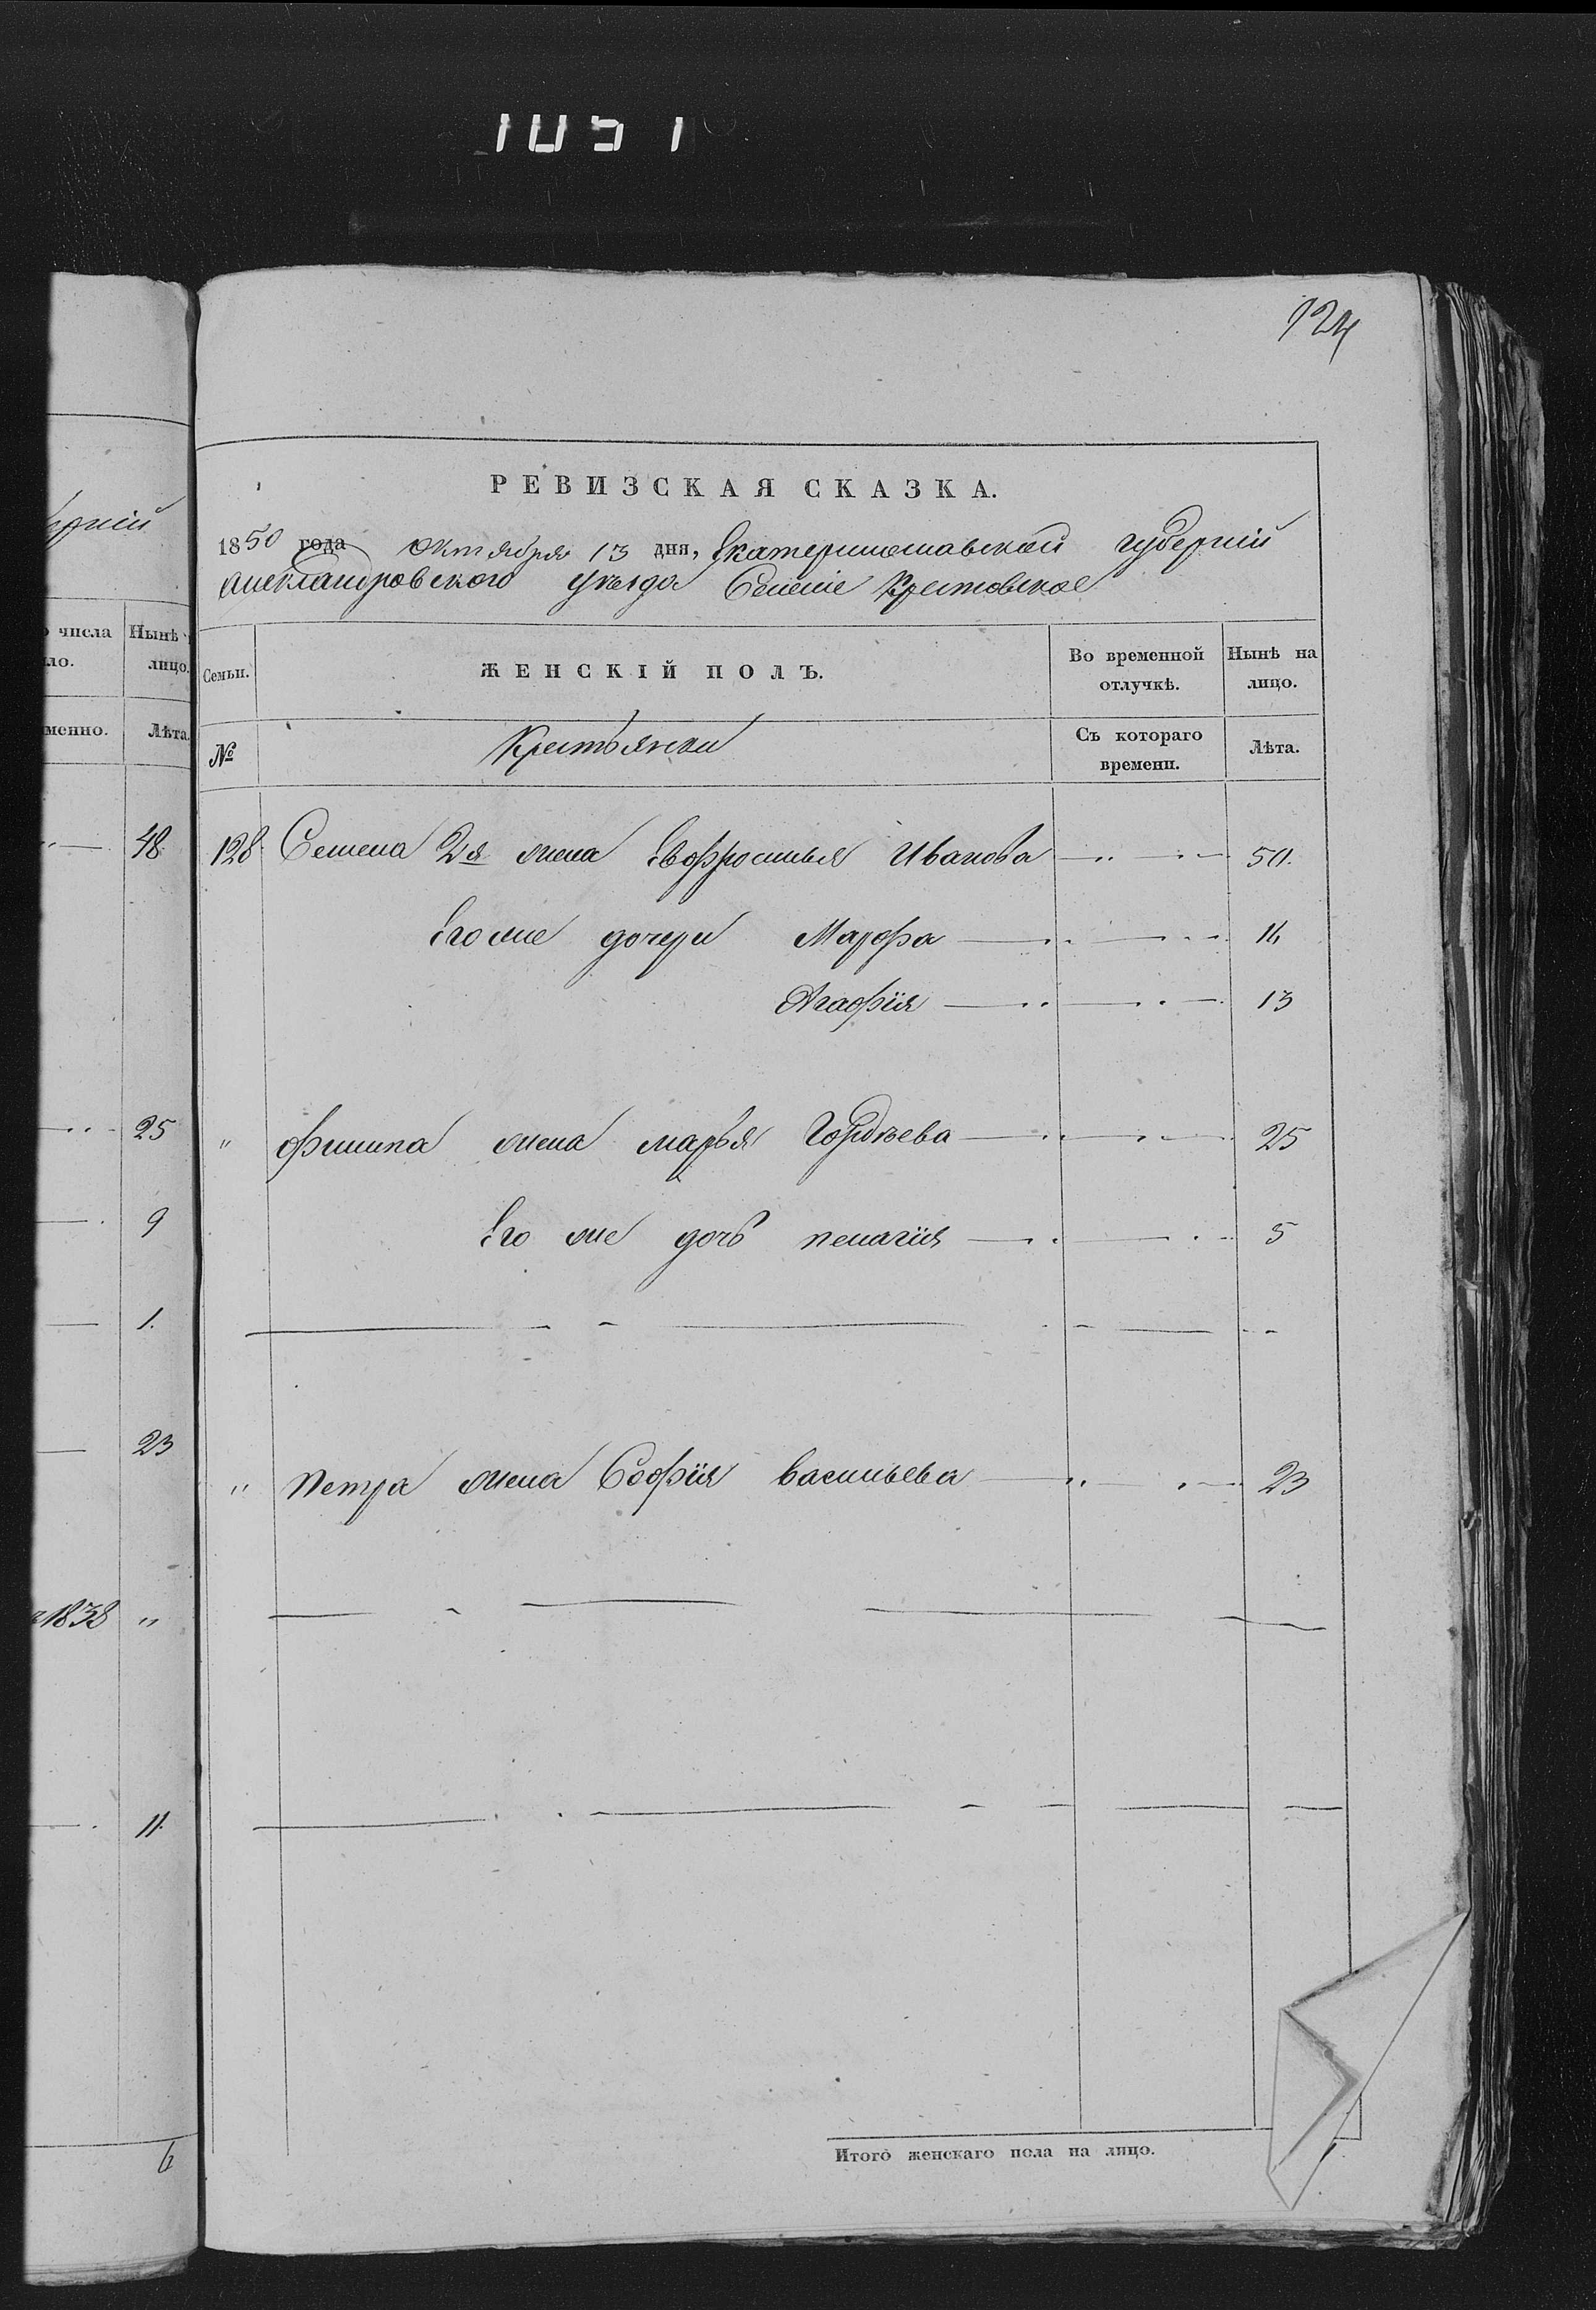 1051
124
РЕВИЗСКАЯ СКАЗКА.
1850 года Октября 13 дня, Екатеринославской губерніи
Александровского уѣзда Селеніе Крестовское
Семьи.
ЖЕНСКІЙ ПОЛЪ.
Во временной отлучкѣ.
Нынѣ на лицо.
№
Крестьянки
Съ котораго времени.
Лѣта.
128 Семена 2я жена Евфросинья Иванова 50.
Его же дочери Марфа 14
Агафія 13
" Филипа жена марья Гордѣева 25
Его же дочь пелагія 5
" Петра жена Софія васильева 23
Итого женскаго пола на лицо.
числа
ло.
Нынѣ
лицо.
менно.
Лѣта.
48
25
9
1.
23
1838 "
11.
6